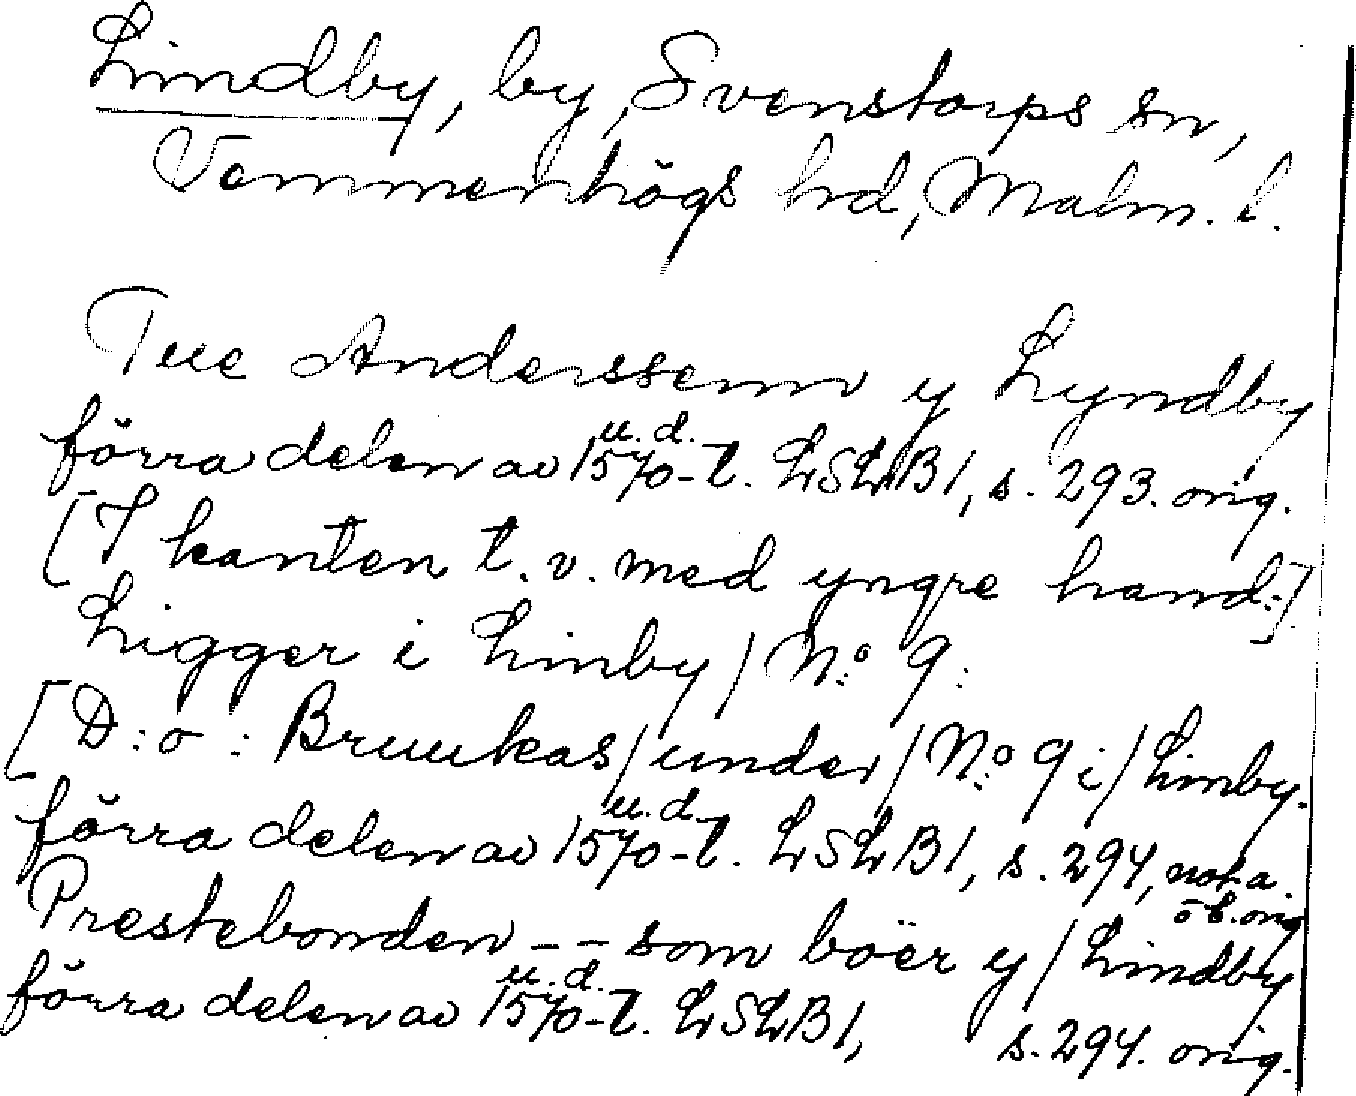 Lindby, by, Svenstorps sn,
Vemmenhögs hd, Malm. l.
Tue Anderssenn y Lyndby
u. d.
förra delen av 1570-t. LSLB1, s. 293. orig.
[I kanten t. v. med yngre hand:]
Ligger i Linby / N:o 9:
[D:o: Bruukas / under / N:o 9 i / Linby.
u. d.
förra delen av 1570-t. LSLB1, s. 294, nota.
o b. orig
Prestebonden -- som böer y / Lindby
u. d.
förra delen av 1570-t. LSLB1, s. 294. orig.